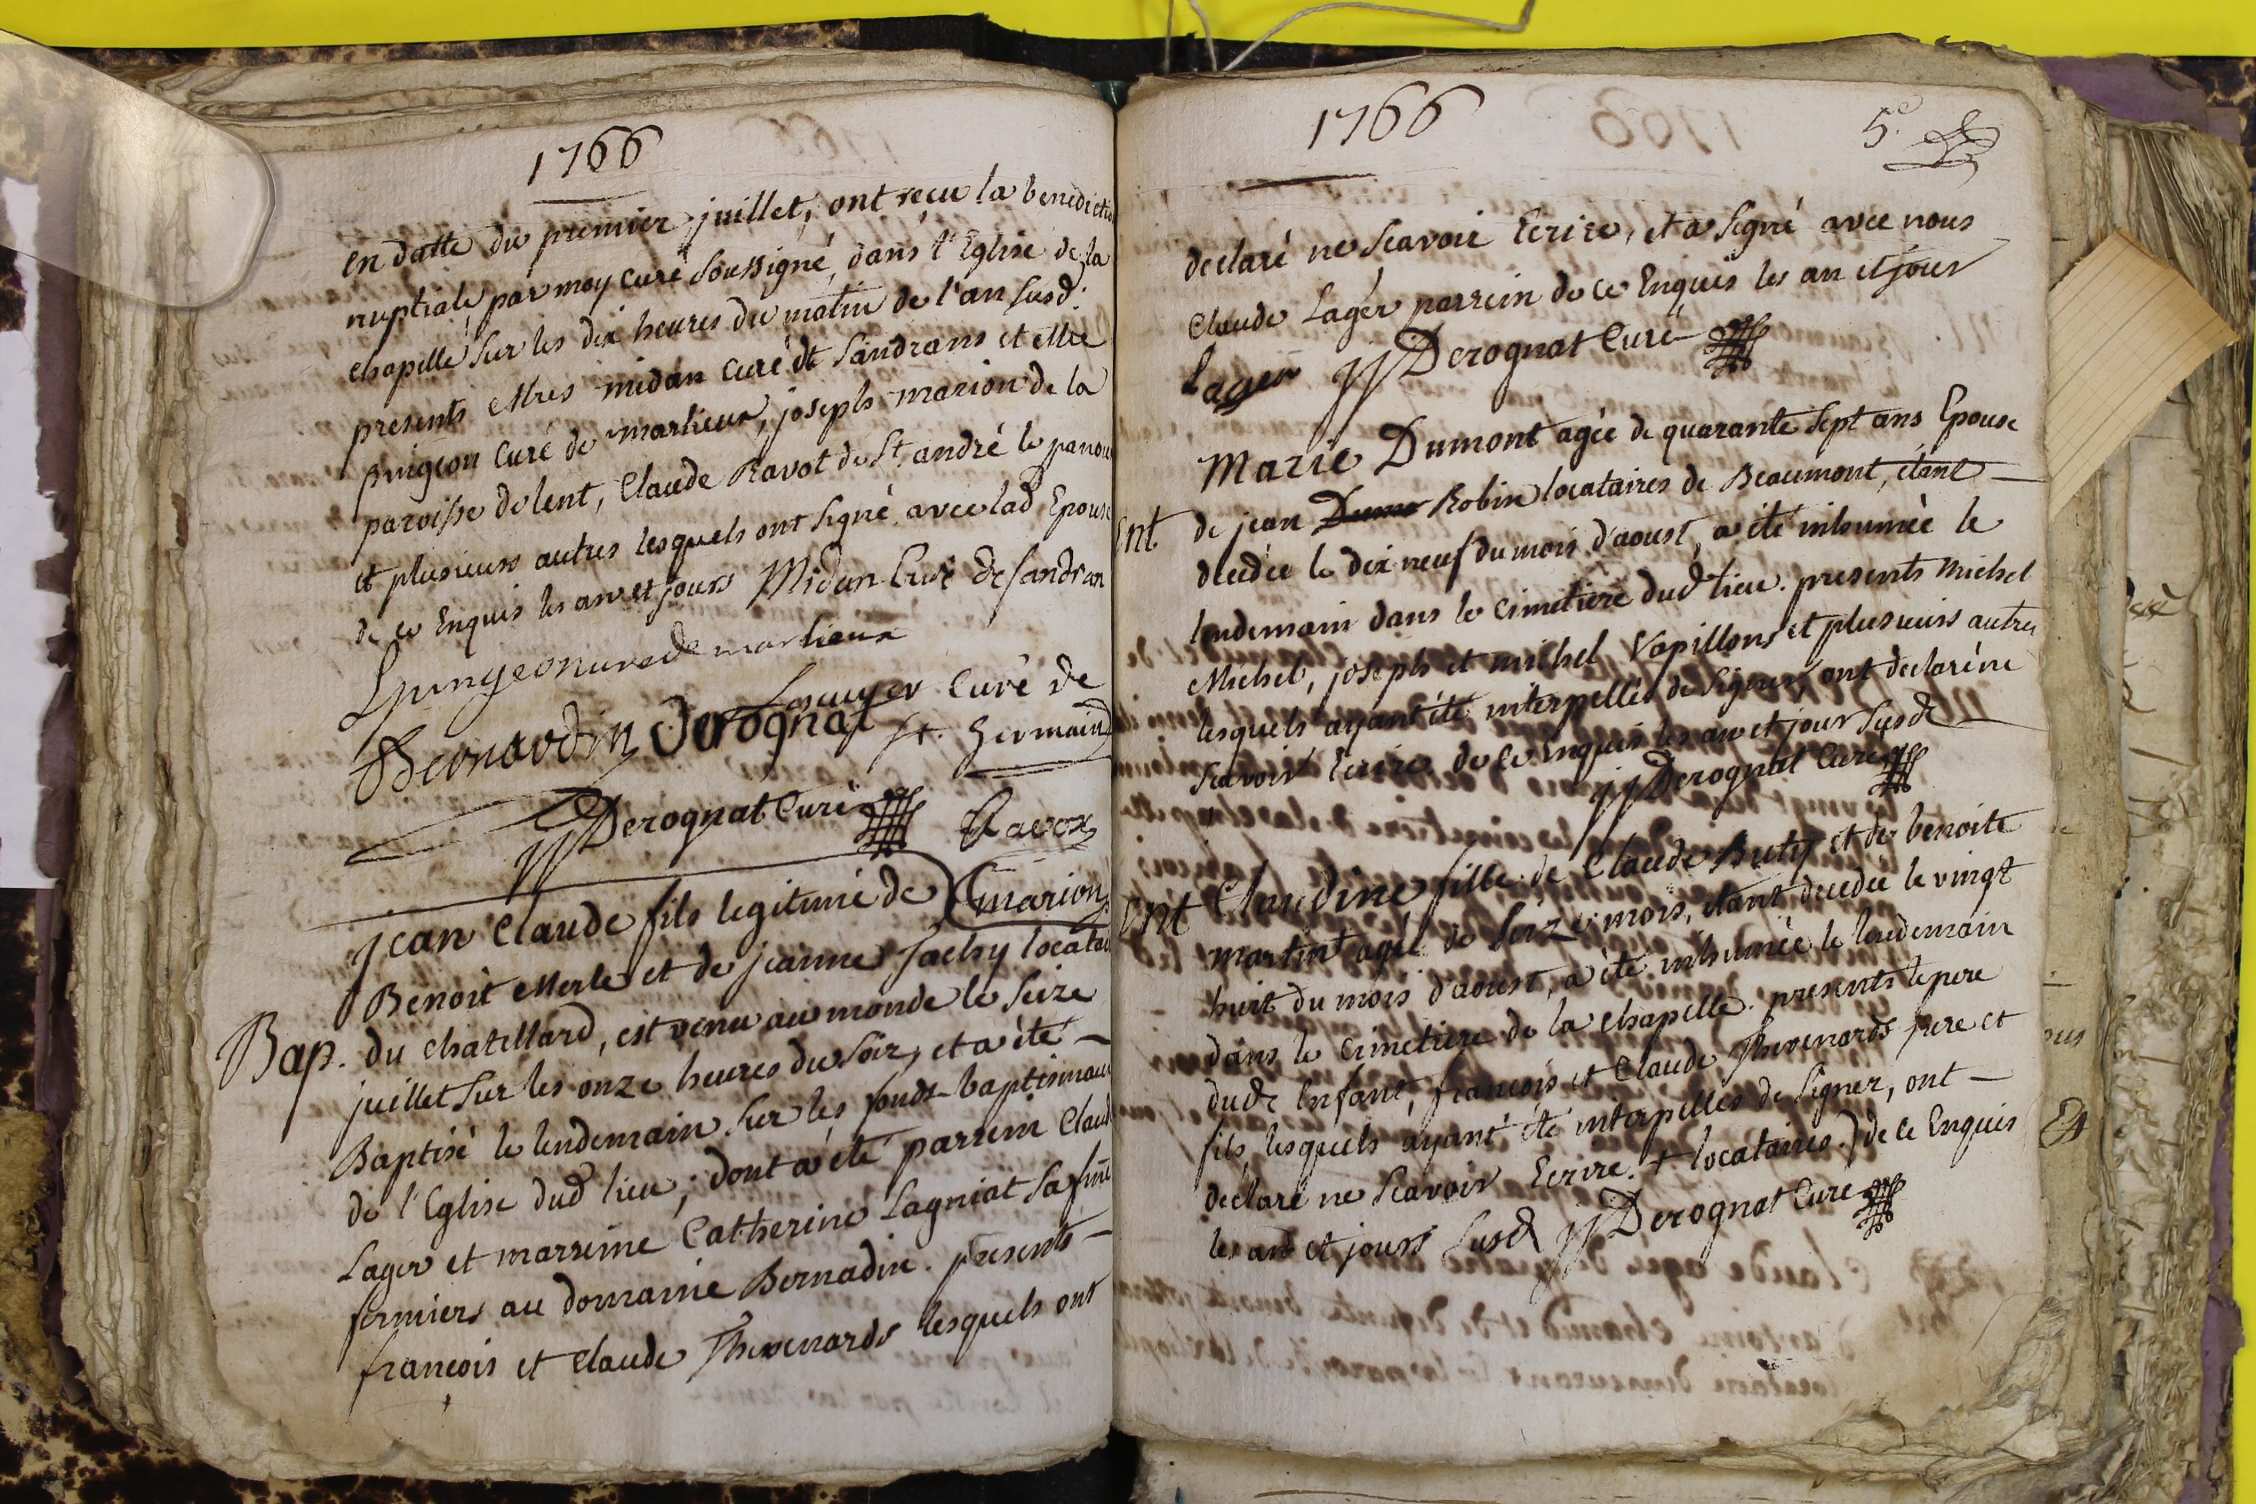 1766
en datte du premier juillet, ont reçu la benedictio
nuptiale par moy curé soussigné, dans l'Eglise de la
chapelle sur les dix heures du matin de l'an susd.
presents Mres midan curé de Sandrans et Mre
pningeon curé de marlieux, joseph marion de la
paroisse de lent, Claude Ravot de St andré le panou
et plusieurs autres lesquels ont signé avec lad Epouse
de ce Enquis les an et jours Midan Curé de sandran
marlieux
curé de
st. Germain
Bernardin Derognat
jj Derognat Curé
Ravox
marion
jean Claude fils legitimé de
Benoit Merle et de jeanne Jachy locatai
Bap. du chatillard, est venu au monde le seize
juillet sur les onze heures du soir, et a été
Baptisé le lendemain sur les fonds baptismaux
de l'Eglise dud lieu; dont a été parrein Claud
Lager et marreine Catherine Lagniat sa fme
fermiers au domaine Bernadin. presents
francois et claude Thevenards lesquels ont
1766
5e.
declaré ne scavoir Ecrire, et a signé avec nous
Claude Lager parrein de ce Enquis les an et jour
Lager jj Derognat Curé
Marie Dumont agée de quarante sept ans Epouse
Ent de jean Dumo Robin locataires de Beaumont, étant
decedée le dix neuf du mois d'aoust, a été inhumée le
lendemain dans le cimetiere dud lieu. presents michel
Michel, joseph et michel Vapillons et plusieurs autres
lesquels ayant été interpellés de signer, ont declaré ne
scavoir Ecrire de ce Enquis les an et jour susd
jj Derognat Curé
Ent Claudine fille de Claude Buty et de benoite
martin agée de seize mois, étant decedée le vingt
huit du mois d'aoust, a été inhumée le lendemain
dans le cimetiere de la chapelle. presents le pere
dud Enfant, francois et Claude Thevenards pere et
fils, lesquels ayant été interpellés de signer, ont
declaré ne scavoir Ecrire. + locataires) de ce Enquis
les an et jours susd jj Derognat Curé